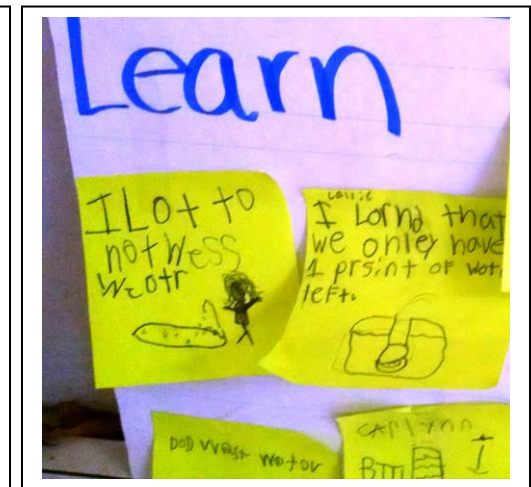 Learn
I Lot to
not Wess
Weotr
carrie
I Lornd that
we onley have
1 prsint of wot
left.
DOD Wast Wotor
CAPlynn
BTTl I